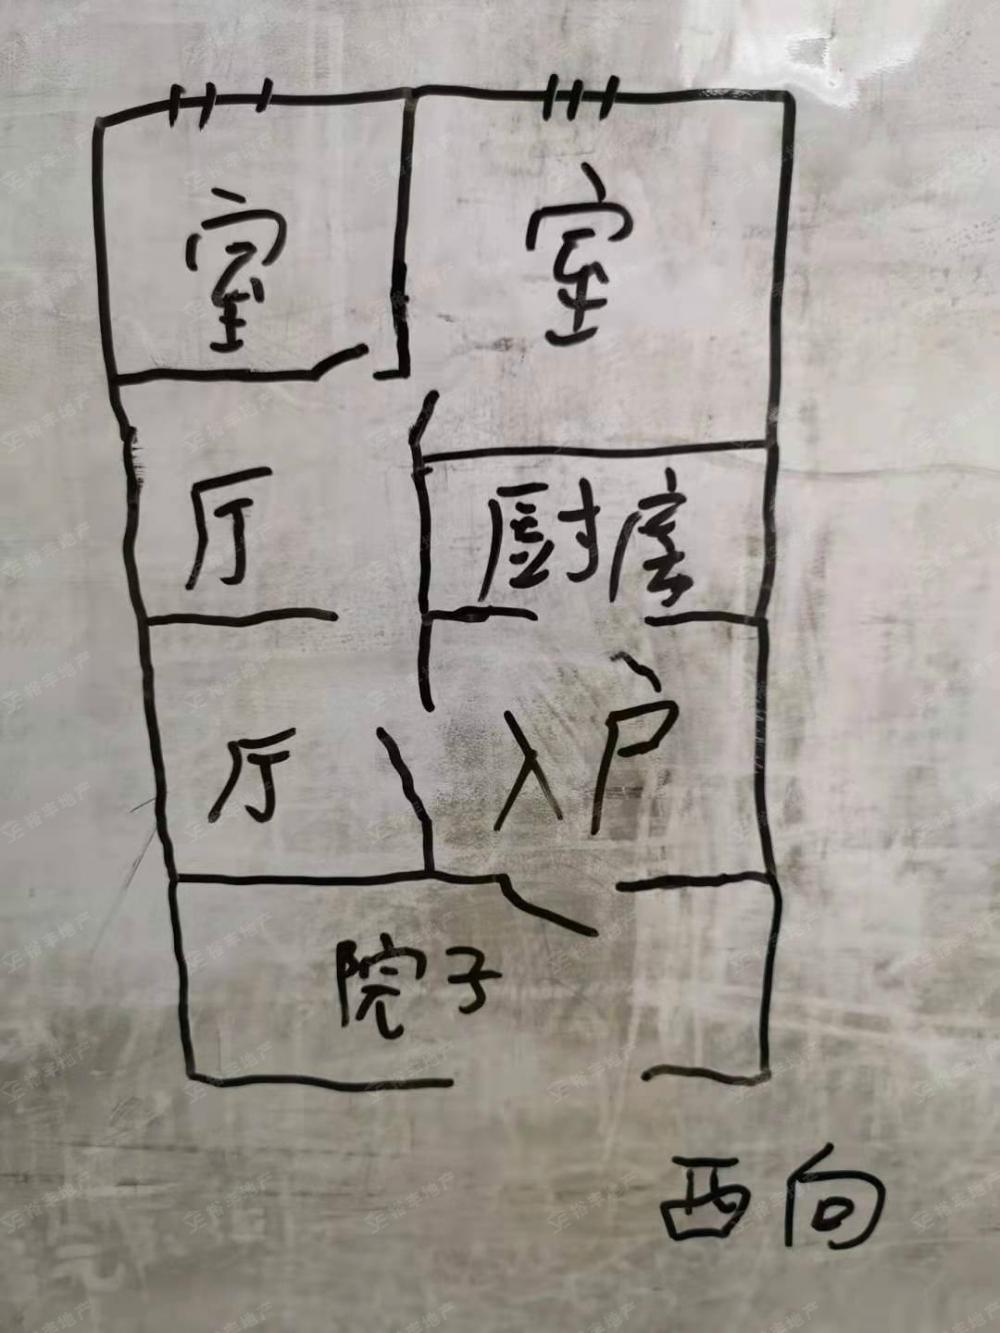 室
室
厅
厨房
厅
入户
院子
西向